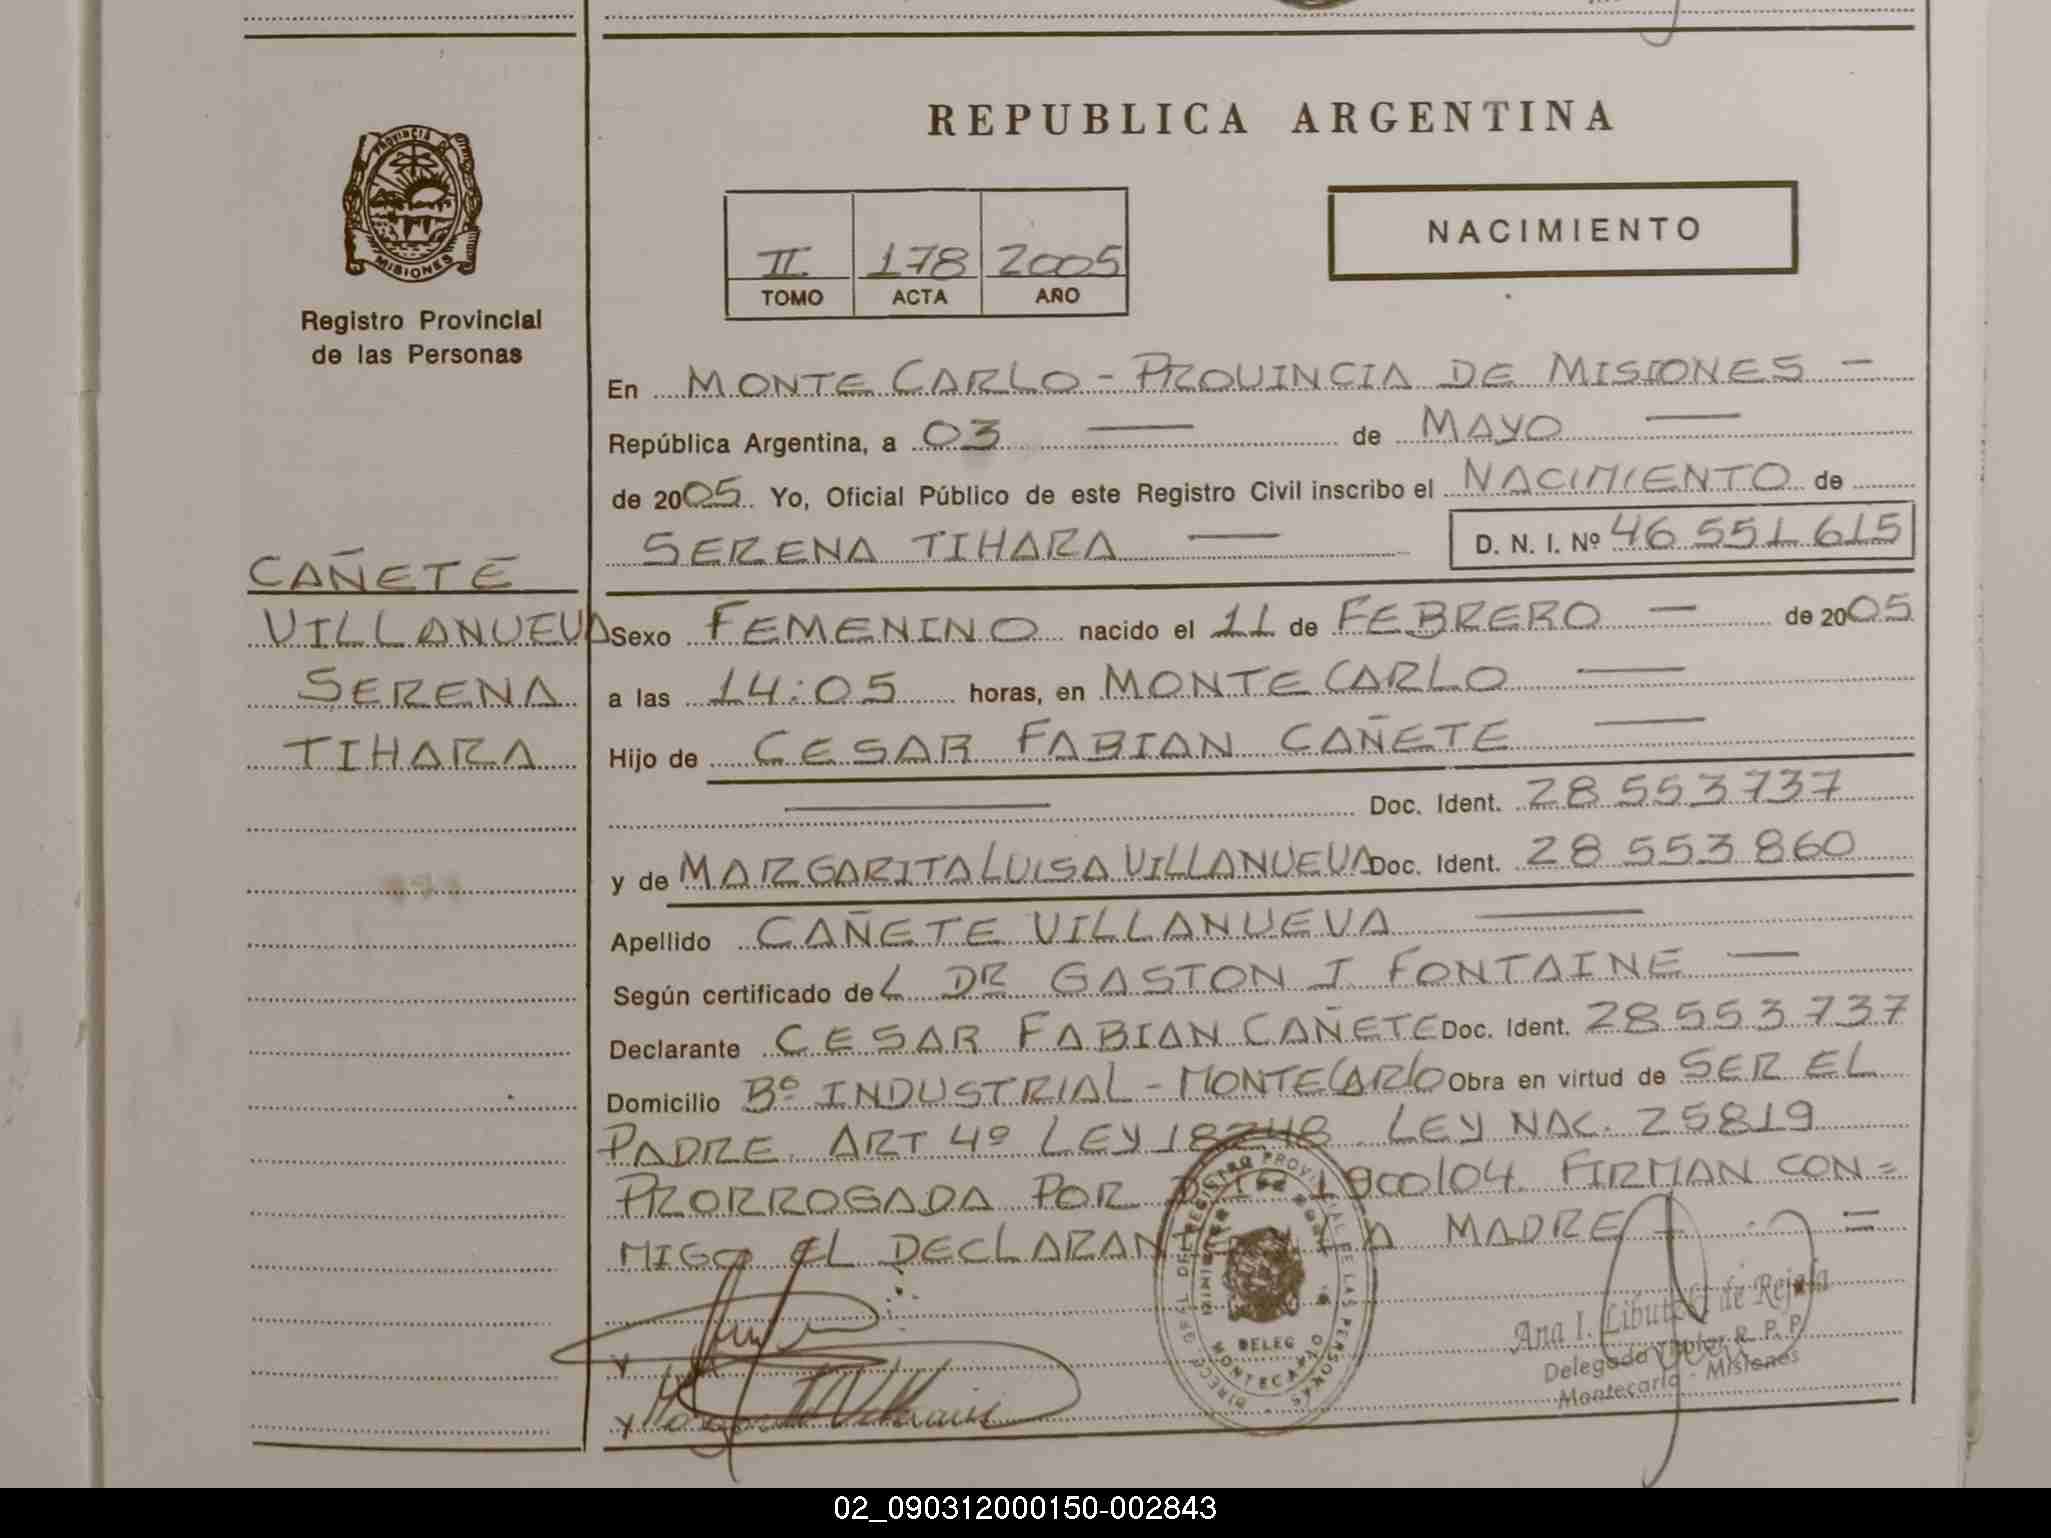 REPUBLICA ARGENTINA
PROVINCIA DE
MISIONES
Registro Provincial
de las Personas
II 178 2005
TOMO ACTA AÑO
NACIMIENTO
En MONTE CARLO - PROVINCIA DE MISIONES —
República Argentina, a 03 — de MAYO —
de 2005. Yo, Oficial Público de este Registro Civil inscribo el NACIMIENTO de
SERENA TIHARA — D. N. I. Nº 46 551 615
CAÑETE
VILLANUEVA
SERENA
TIHARA
Sexo FEMENINO nacido el 11 de FEBRERO — de 2005
a las 14:05 horas, en MONTE CARLO —
Hijo de CESAR FABIAN CAÑETE —
— Doc. Ident. 28 553 737
y de MARGARITA LUISA VILLANUEVA Doc. Ident. 28 553 860
Apellido CAÑETE VILLANUEVA —
Según certificado de L DR GASTON I FONTAINE —
Declarante CESAR FABIAN CAÑETE Doc. Ident. 28 553 737
Domicilio Bº INDUSTRIAL - MONTECARLO Obra en virtud de SER EL
PADRE. ART 4º LEY 18248. LEY NAC. 25819
PRORROGADA POR 1900/04. FIRMAN CON=
MIGO EL DECLARANTE LA MADRE — =
DIRECC. GRAL. DEL REGISTRO PROVINCIAL DE LAS PERSONAS
DELEG
MONTECARLO
Ana I. de Rejala
Delegada Titular R. P. P.
Montecarlo - Misiones
02_090312000150-002843